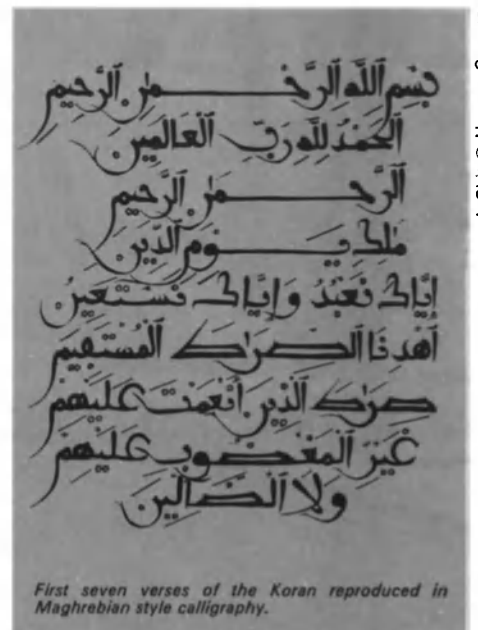 بِسْمِ ٱللَّهِ ٱلرَّحْمَٰنِ ٱلرَّحِيمِ
ٱلْحَمْدُ لِلَّهِ رَبِّ ٱلْعَالَمِينَ
ٱلرَّحْمَٰنِ ٱلرَّحِيمِ
مَلِكِ يَوْمِ ٱلدِّينِ
إِيَّاكَ نَعْبُدُ وَإِيَّاكَ نَسْتَعِينُ
ٱهْدِنَا ٱلصِّرَٰطَ ٱلْمُسْتَقِيمَ
صِرَٰطَ ٱلَّذِينَ أَنْعَمْتَ عَلَيْهِمْ
غَيْرِ ٱلْمَغْضُوبِ عَلَيْهِمْ
وَلَا ٱلضَّالِّينَ
First seven verses of the Koran reproduced in
Maghrebian style calligraphy.